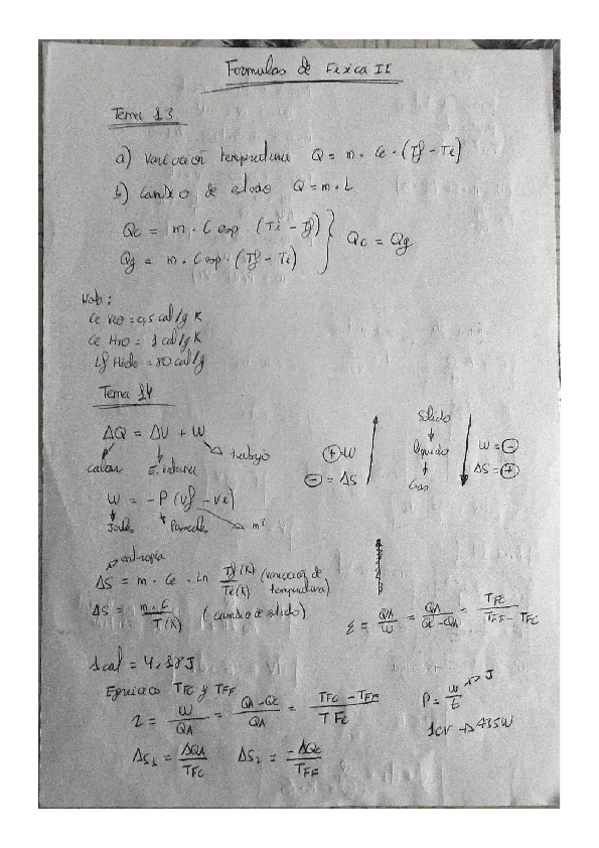 Formulas de Fisica II
Tema 13
a) Variación temperatura Q = m · Ce · (Tf - Ti)
b) Cambio de estado Q = m · L
Qc = m · C esp · (Ti - Tf)
Qg = m · C esp · (Tf - Ti)
Qc = Qg
Nota:
Ce = 0,5 cal/g K
Ce H2O = 1 cal/g K
Lf Hielo = 80 cal/g
Tema 14
ΔQ = ΔU + W
calor E. interna trabajo
W = -P (Vf - Vi)
Joules Pascales m³
⊕ W
⊖ = ΔS
Sólido
líquido
Gas
W = ⊖
ΔS = ⊕
entropia
ΔS = m · Ce · Ln Tf(K)/Ti(K) (variación de temperatura)
ΔS = m · L/T(K) (cambio de)
ε = QA/W = QA/QC-QA = TFC/TFF - TFC
1cal = 4,18J
TFC y TFF
W/QA = QA-QC/QA = TFC - TFF/TFC
ΔS1 = ΔQA/TFC ΔS2 = -ΔQC/TFF
P = W/t → J
1CV → 735W